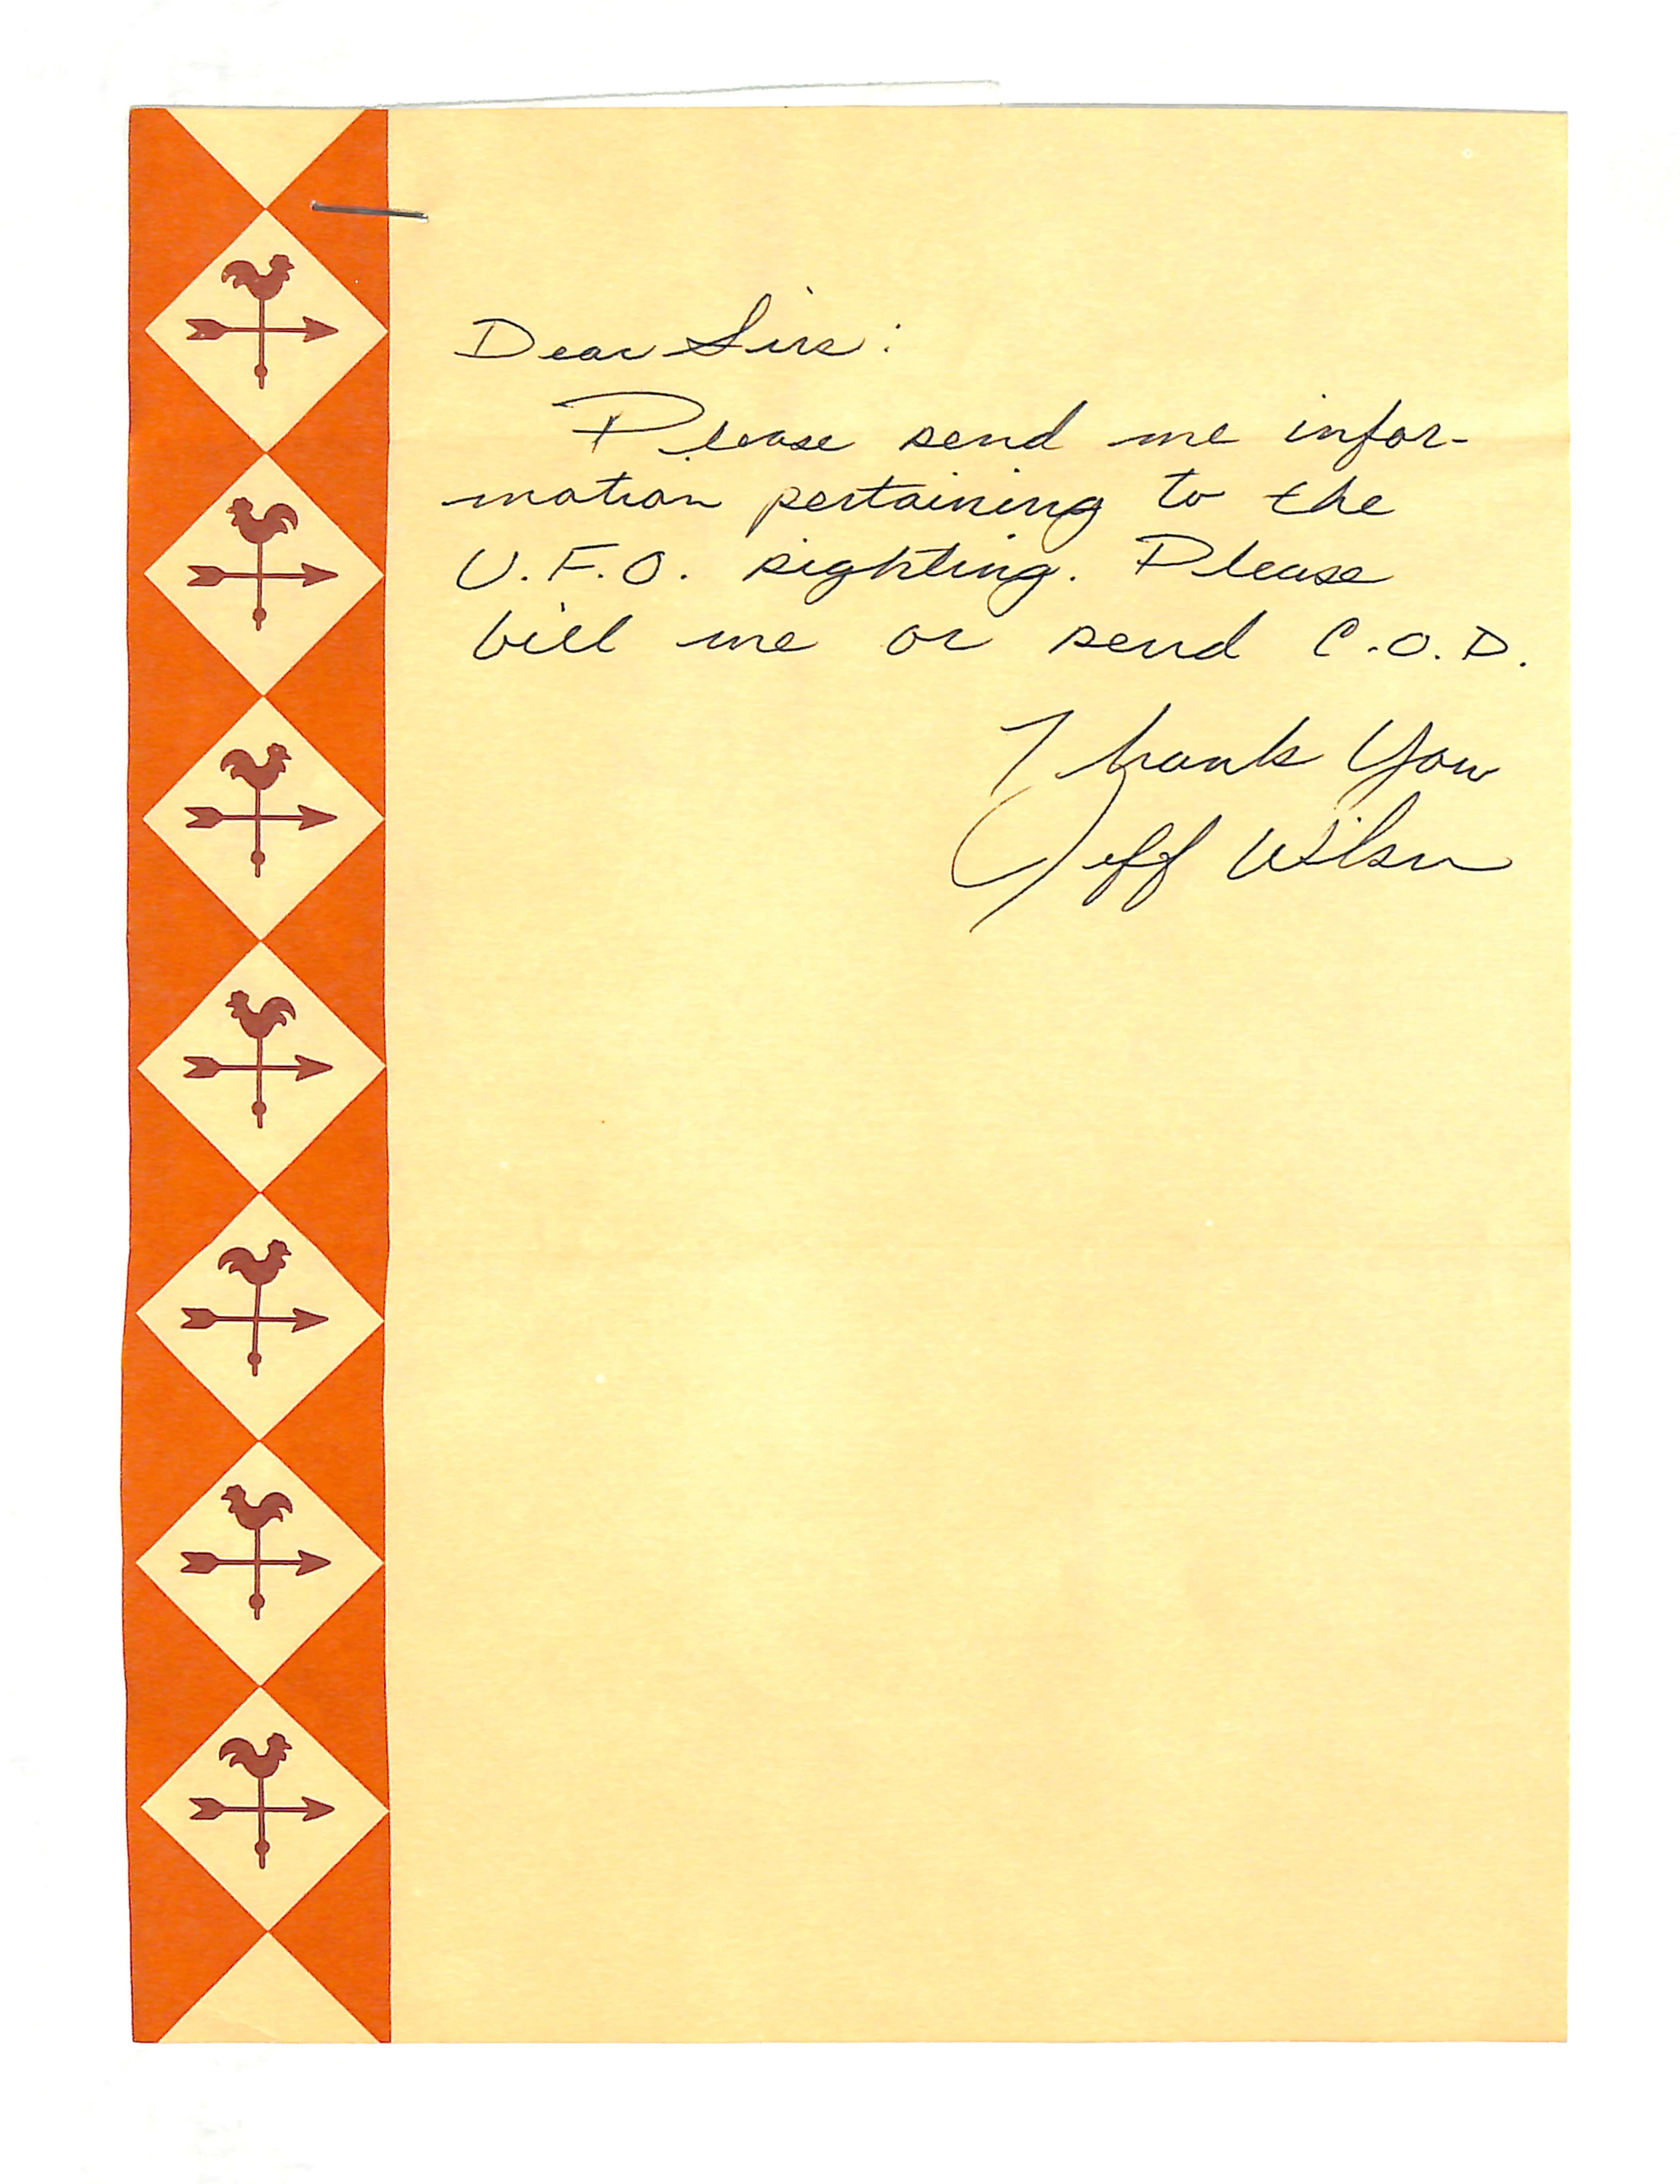 Dear Sirs:
Please send me infor-
mation pertaining to the
U.F.O. sighting. Please
bill me or send C.O.D.
Thank You
Jeff Wilson